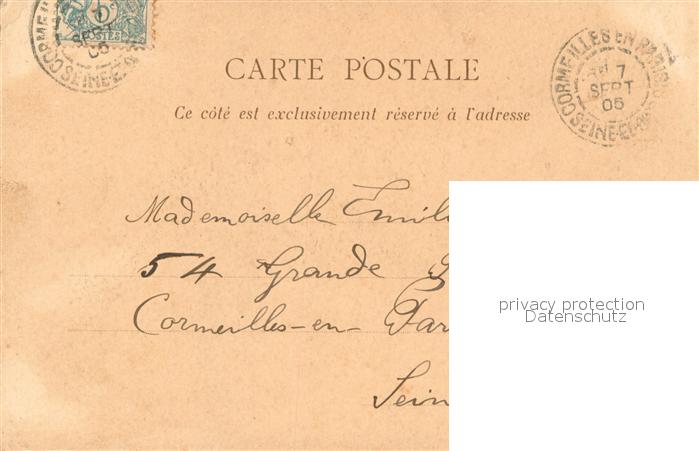 CORMEILLES EN PARISIS
7
SEPT
05
SEINE-ET-
POSTES
CARTE POSTALE
Ce côté est exclusivement réservé à l'adresse
CORMEILLES EN PARISIS
7
SEPT
05
SEINE-ET-
Mademoiselle Emil
54 Grande
Cormeilles-en-Par
Sein
privacy protection
Datenschutz